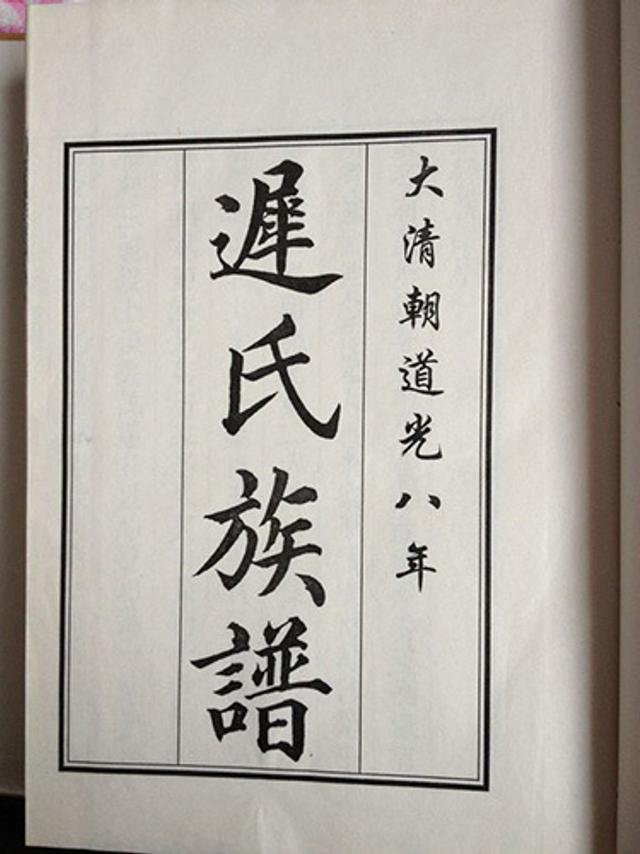 大清朝道光八年
遲氏族譜